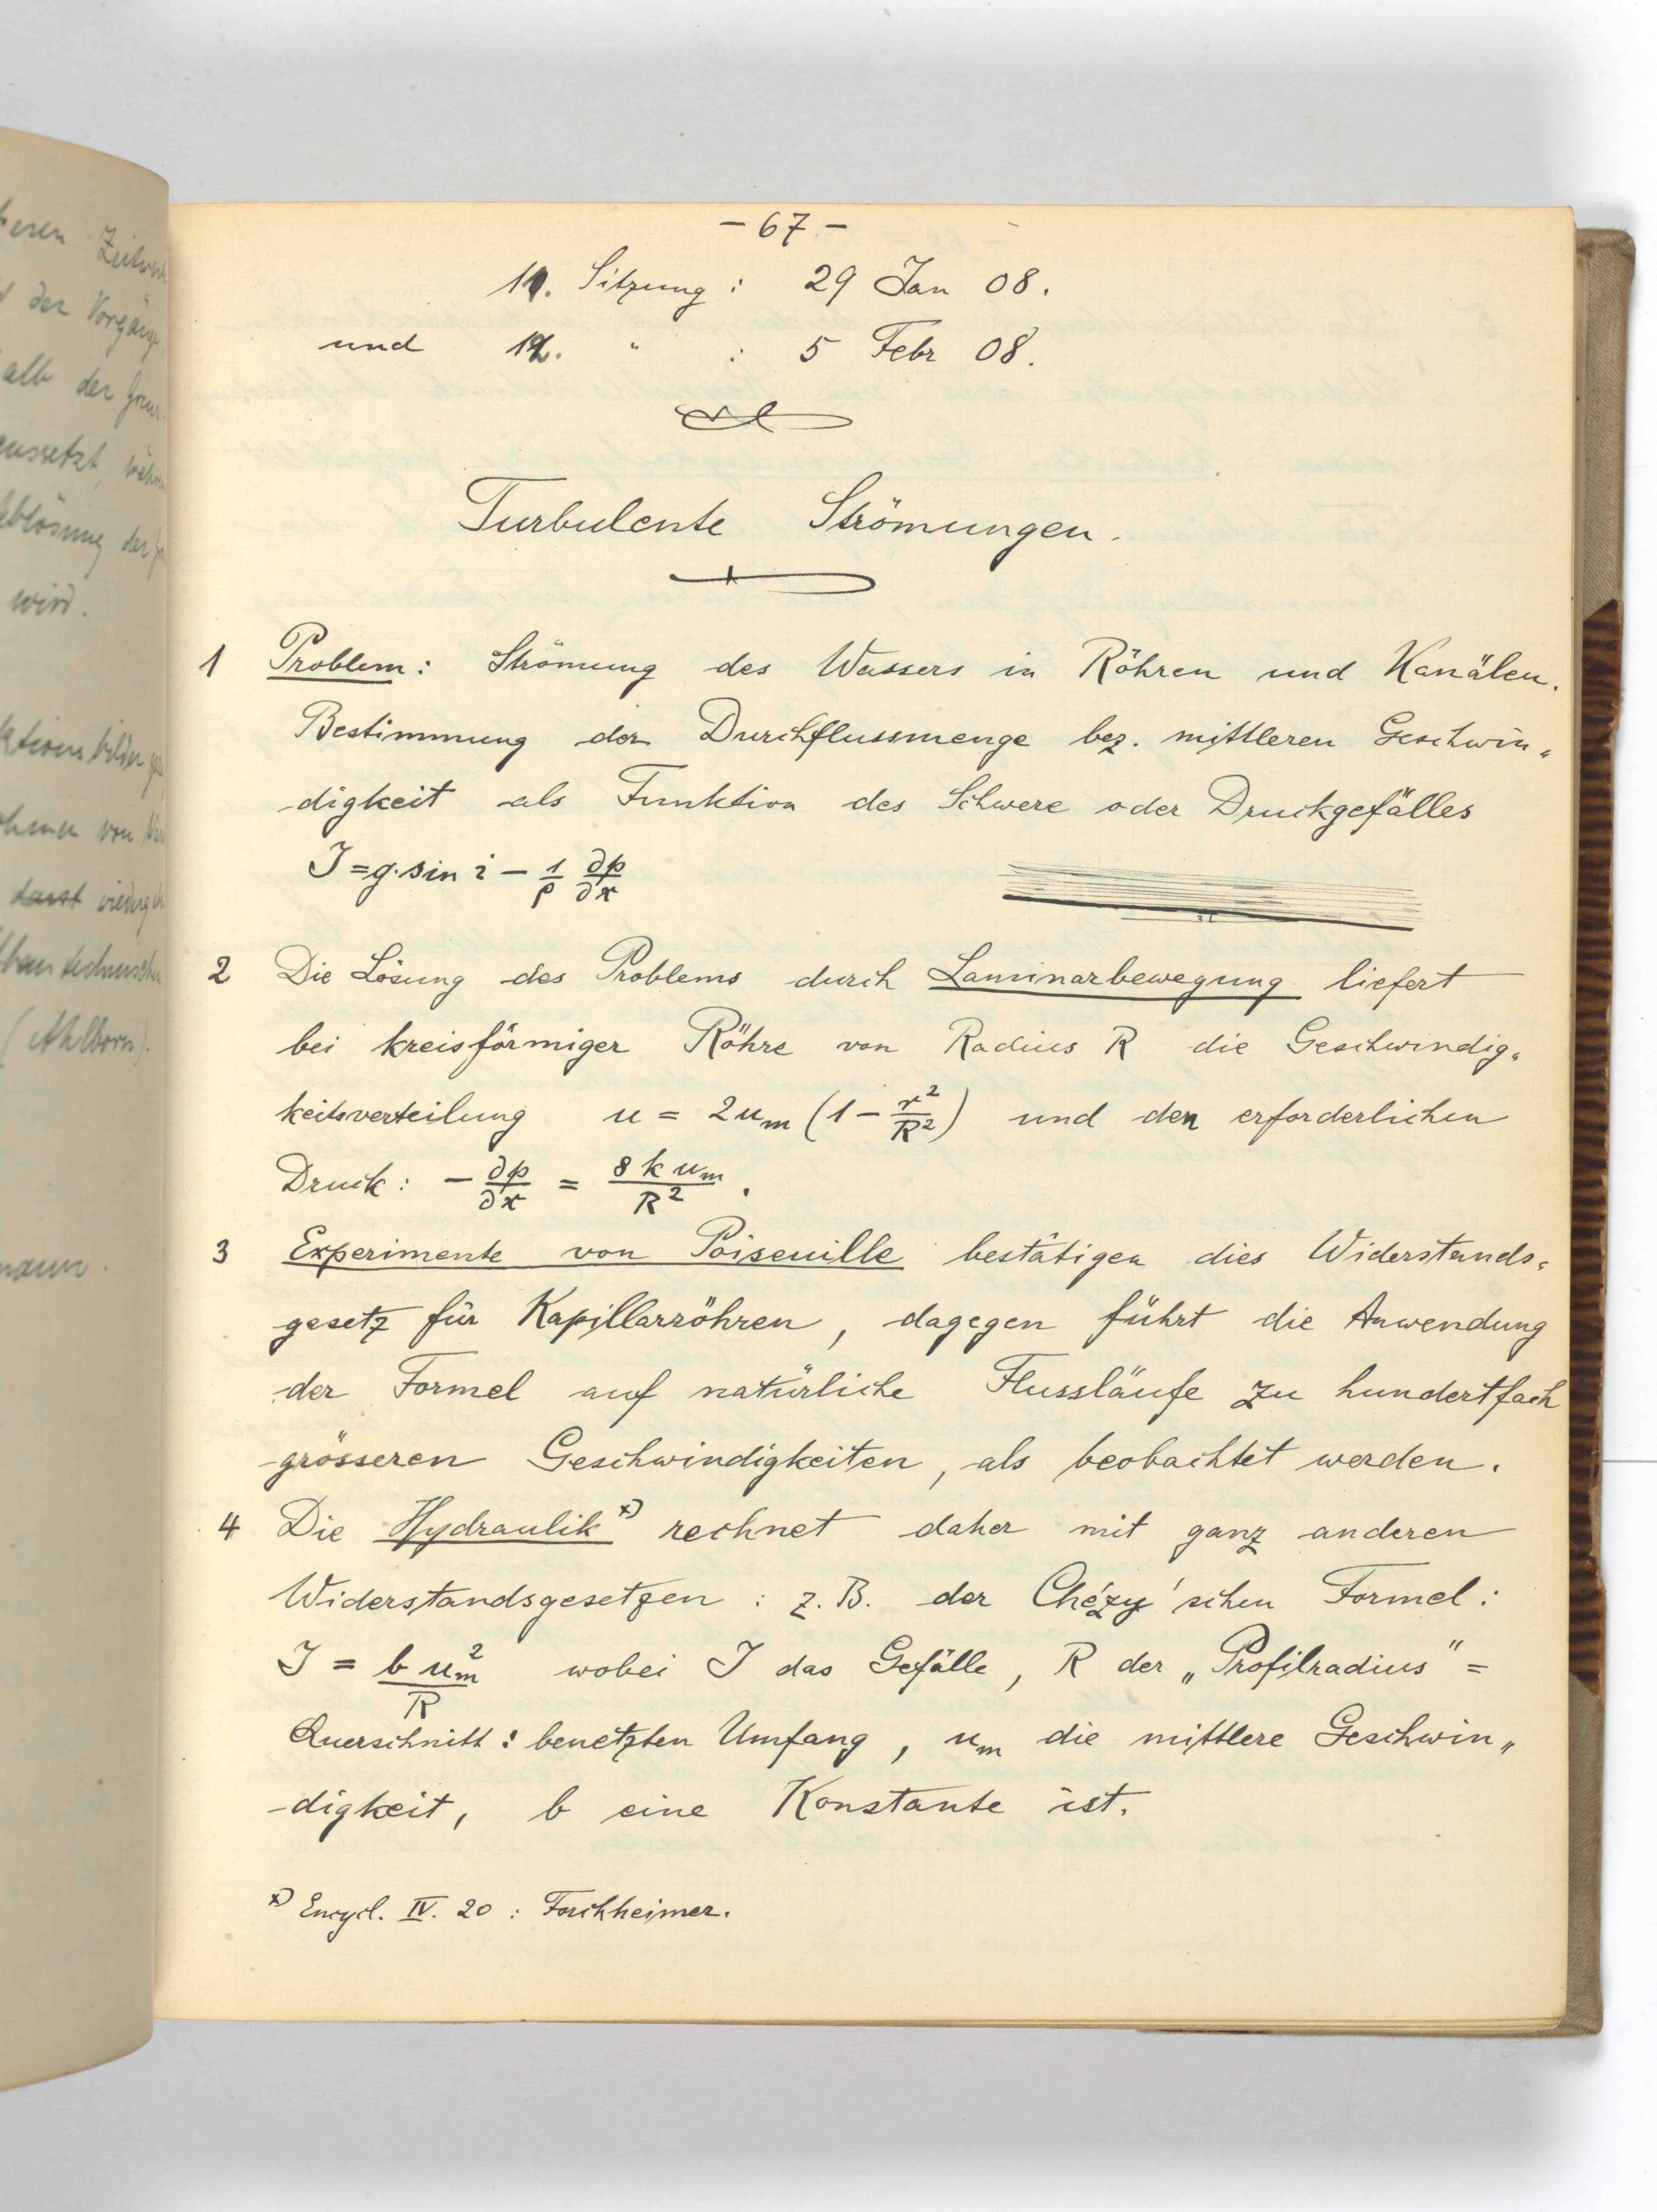 beren Zeitwert
der Vorgänge
alb der Grenz-
aussetzt, währen
Ablösung der
wird.
ktionsbilder
ahmen von
darst wiederge
than technischen
(Ahlborn).
mann.
- 67 -
11. Sitzung : 29 Jan 08.
und 12. " : 5 Febr 08.
Turbulente Strömungen.
1 Problem: Strömung des Wassers in Röhren und Kanälen.
Bestimmung der Durchflussmenge bez. mittleren Geschwin„
digkeit als Funktion des Schwere oder Druckgefälles
J = g · sin i − 1/ρ ∂p/∂x
2 Die Lösung des Problems durch Laminarbewegung liefert
bei kreisförmiger Röhre von Radius R die Geschwindig„
keitsverteilung u = 2u_m (1 − r²/R²) und den erforderlichen
Druck: − ∂p/∂x = 8 k u_m / R² .
3 Experimente von Poiseuille bestätigen dies Widerstands„
gesetz für Kapillarröhren, dagegen führt die Anwendung
der Formel auf natürliche Flussläufe zu hundertfach
grösseren Geschwindigkeiten, als beobachtet werden.
4 Die Hydraulik x) rechnet daher mit ganz anderen
Widerstandsgesetzen : z. B. der Chézy'schen Formel :
J = b u_m² / R wobei J das Gefälle, R der „Profilradius" =
Querschnitt : benetzten Umfang, u_m die mittlere Geschwin„
digkeit, b eine Konstante ist.
x) Encycl. IV. 20 : Forchheimer.